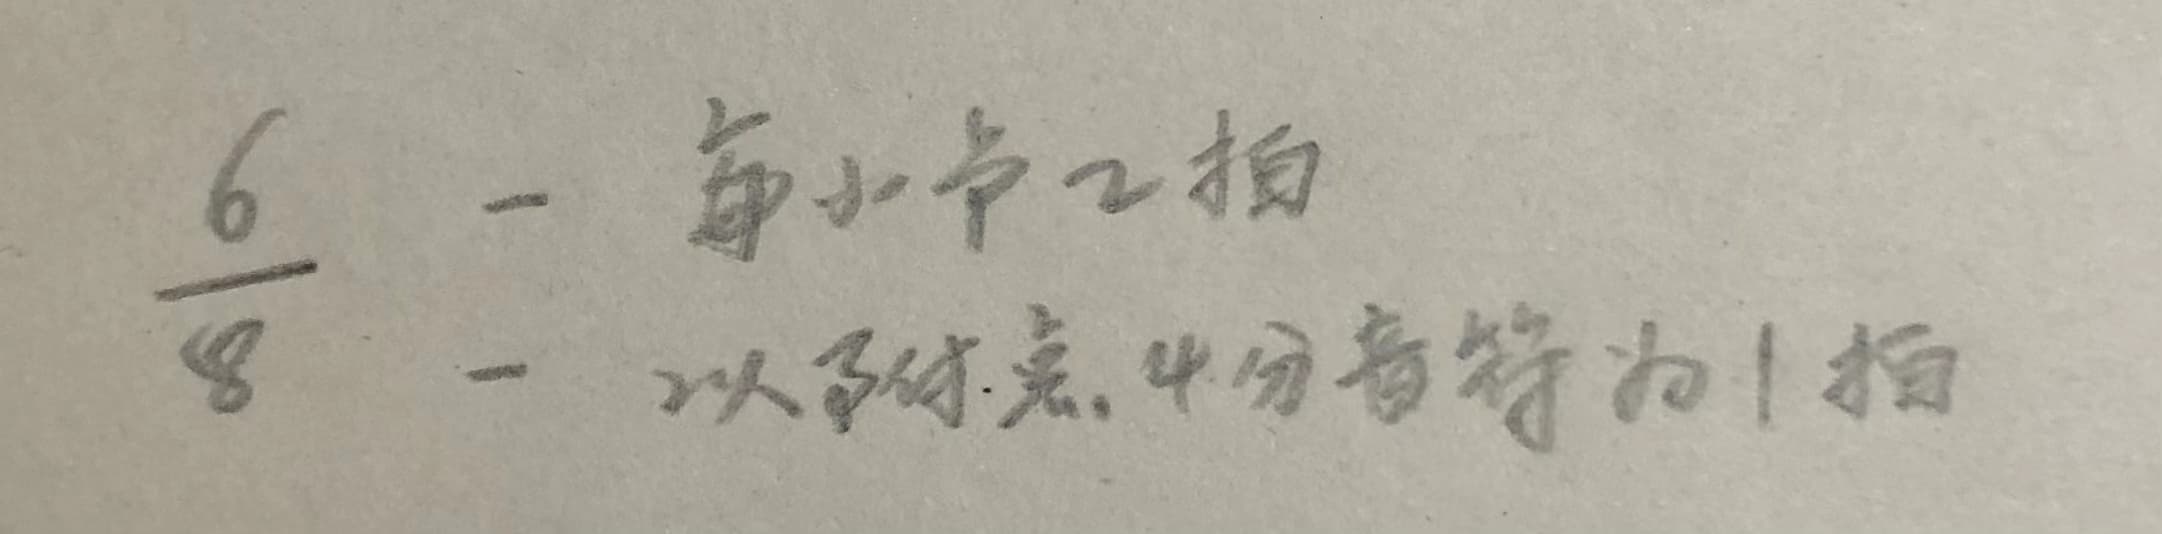 6/8 - 每小节2拍
- 以附点4分音符为1拍